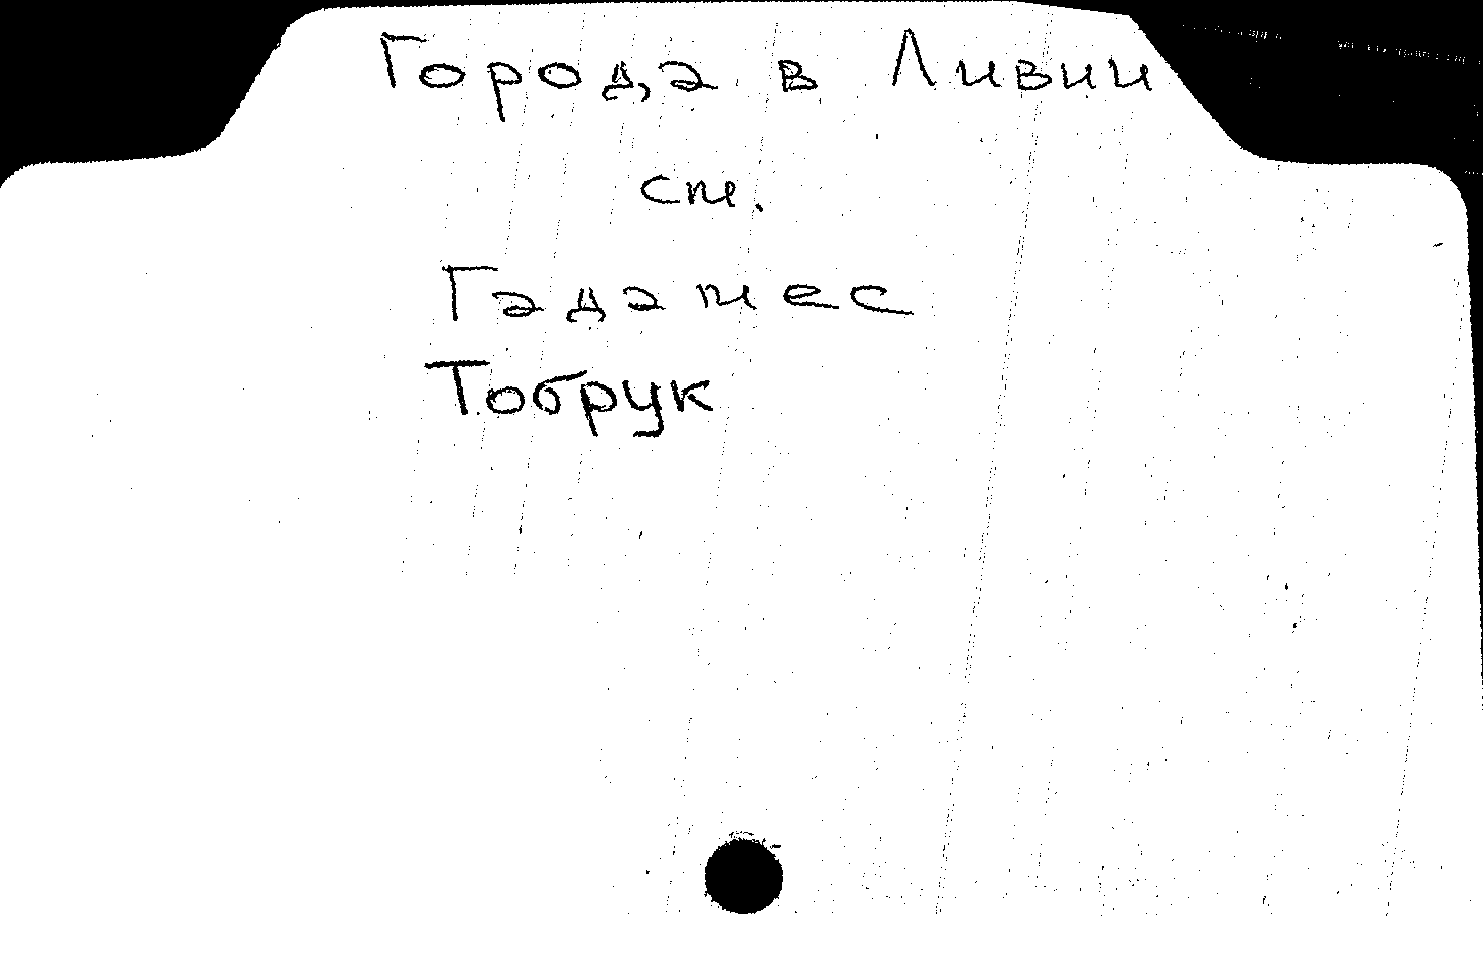 Города в Ливии
см.
Гадамес
Тобрук